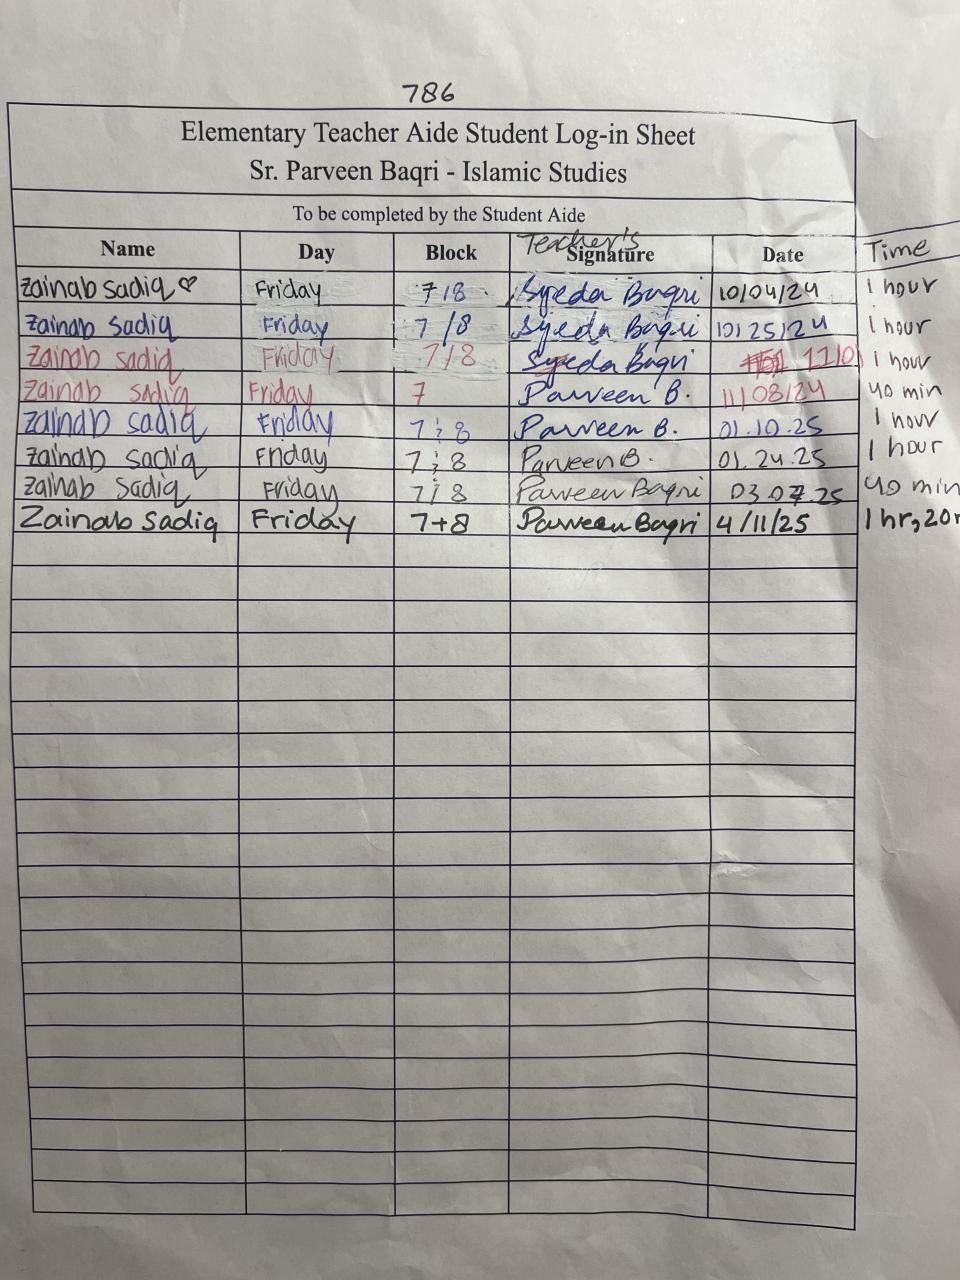 786
Elementary Teacher Aide Student Log-in Sheet
Sr. Parveen Baqri - Islamic Studies
To be completed by the Student Aide
Name Day Block Teacher's Signature Date Time
Zainab sadiq ♡ Friday 7/8 Syeda Baqri 10/04/24 1 hour
Zainab sadiq Friday 7/8 Syeda Baqri 10/25/24 1 hour
Zainab sadiq Friday 7/8 Syeda Baqri 1 hour
Zainab sadiq Friday 7 Parveen B. 11/08/24 40 min
Zainab sadiq Friday 7 & 8 Parveen B. 01.10.25 1 hour
Zainab sadiq Friday 7 & 8 Parveen B. 01.24.25 1 hour
Zainab Sadiq Friday 7/8 Parveen Baqri 03.07.25 40 min
Zainab Sadiq Friday 7+8 Parveen Baqri 4/11/25 1 hr, 20